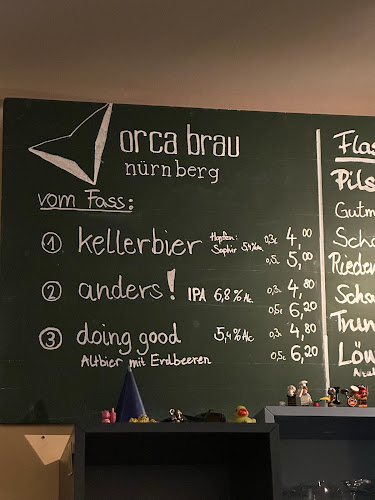 orca brau
nürnberg
vom Fass:
1 kellerbier Hopfen: 0,3l 4,00
Saphir 0,5l 5,00
2 anders! IPA 6,8% Alc 0,3l 4,80
0,5l 6,20
3 doing good 5,4% Alc 0,3l 4,80
Altbier mit Erdbeeren 0,5l 6,20
Flas
Pils
Gutm
Scha
Rieden
Scha
Trun
Löw